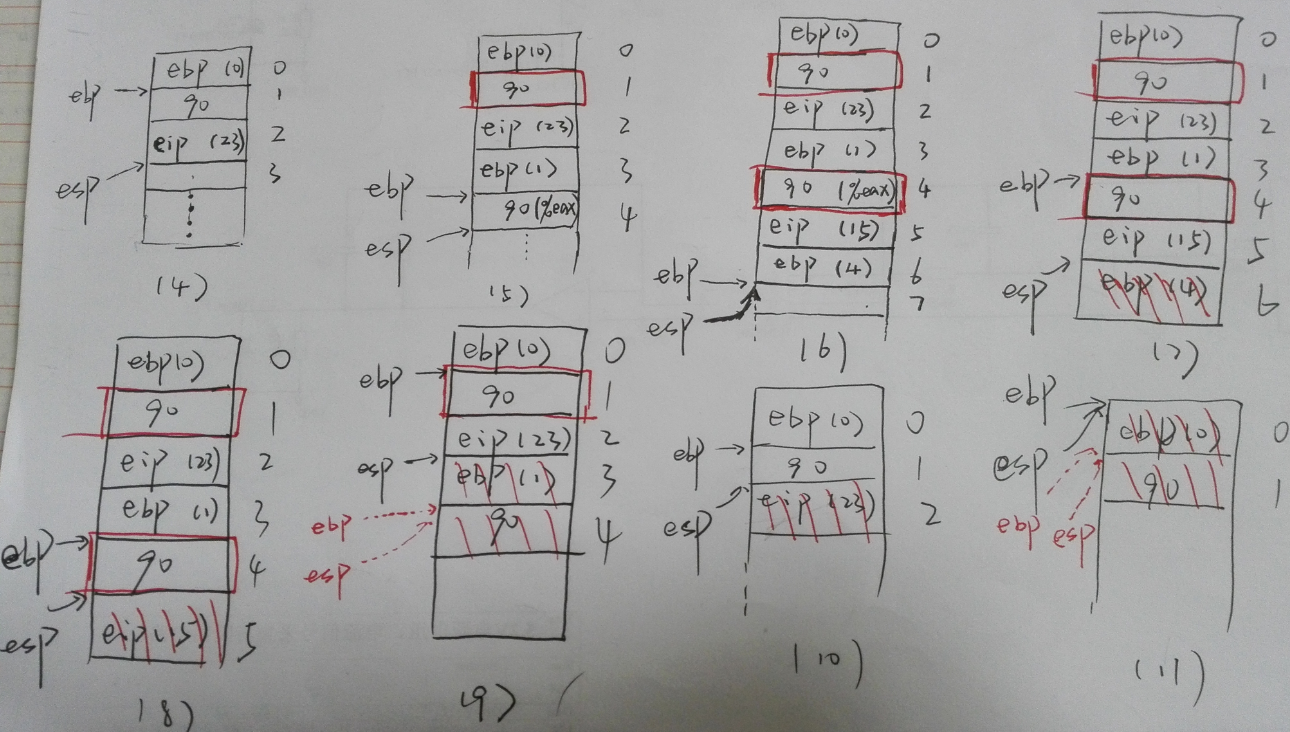 ebp (0) 0
ebp 90 1
eip (23) 2
esp 3
(4)
ebp(0) 0
90 1
eip (23) 2
ebp (1) 3
ebp
90 (%eax) 4
esp
(5)
ebp(0) 0
90 1
eip (23) 2
ebp (1) 3
90 (%eax) 4
eip (15) 5
ebp (4) 6
ebp
7
esp
(6)
ebp(0) 0
90 1
eip (23) 2
ebp (1) 3
ebp
90 4
eip (15) 5
esp
ebp (4) 6
(7)
ebp(0) 0
90 1
eip (23) 2
ebp (1) 3
ebp
90 4
esp
eip (15) 5
(8)
ebp(0) 0
ebp
90 1
eip (23) 2
esp
ebp (1) 3
ebp
90 4
esp
(9)
ebp(0) 0
ebp
90 1
esp
eip (23) 2
(10)
ebp
ebp(0) 0
esp
90 1
ebp esp
(11)